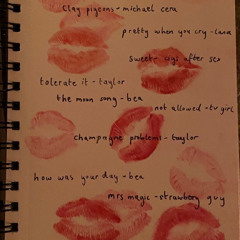 clay pigeons - michael cera
pretty when you cry - lana
sweet cigs after sex
tolerate it - taylor
the moon song - bea
not allowed - tv girl
champagne problems - taylor
how was your day - bea
mrs magic - strawberry guy